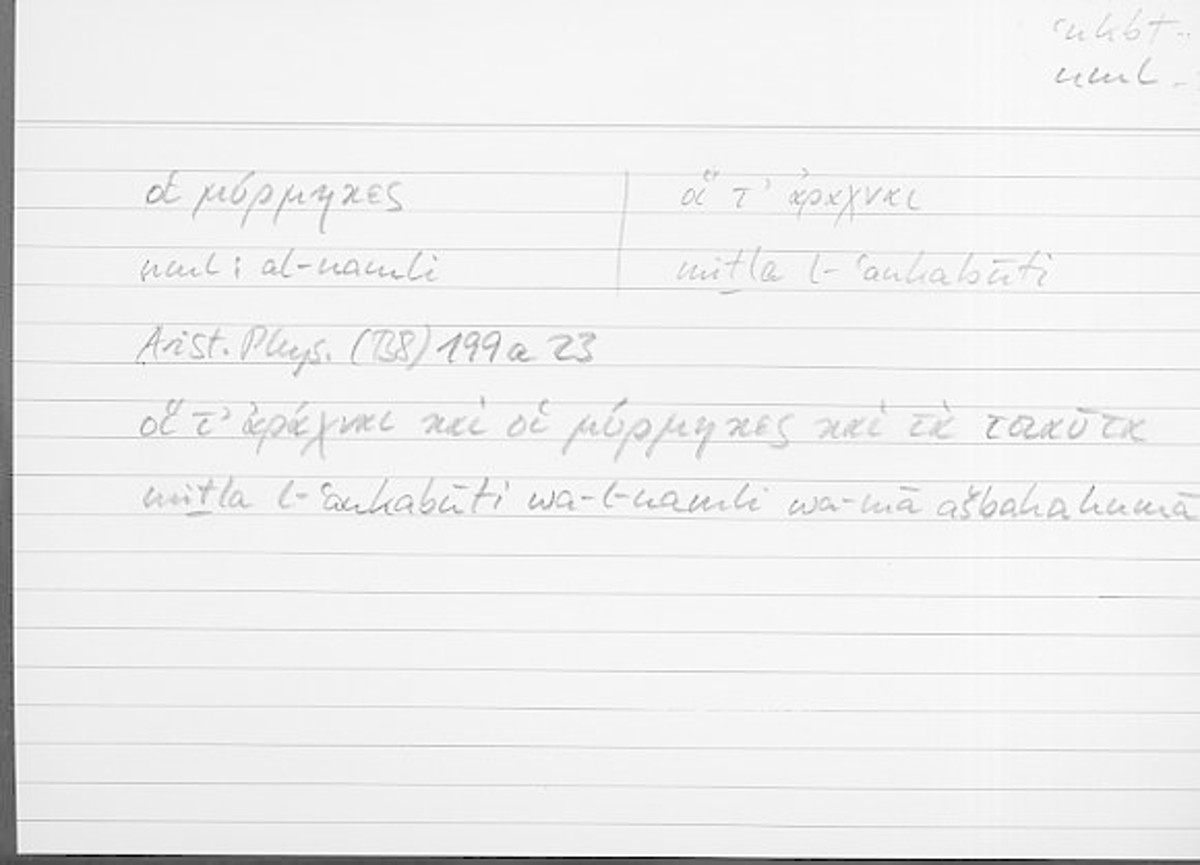 ʿnkbt..
nml -
οἱ μύρμηκες | αἵ τ' ἀράχναι
nml : al-namli | miṯla l-ʿankabūti
Arist. Phys. (B8) 199a 23
αἵ τ' ἀράχναι καὶ οἱ μύρμηκες καὶ τὰ τοιαῦτα
miṯla l-ʿankabūti wa-l-namli wa-mā ašbahahumā